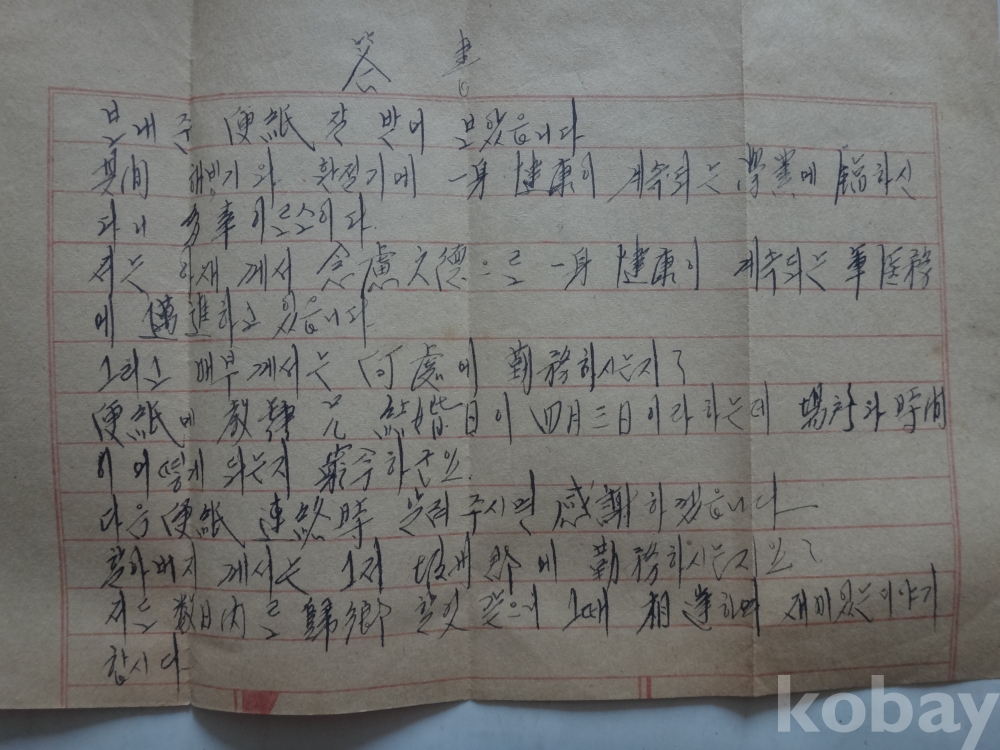 答書
보내준 便紙 잘 받어 보았읍니다
其間 해빙기와 환절기에 一身 健康이 계속되는 學業에 하신
다니 多幸이르소이다.
저는 께서 念慮之德으로 一身 健康이 계속되는 軍医務
에 邁進하고 있읍니다.
그리고 매부께서는 何處에 勤務하시는지?
便紙에 敎 兄 結婚日이 四月三日이라하는데 場所와 時間
이 어떻게 되는지 궁금하군요.
다음 便紙 連絡時 알려주시면 感謝하겠읍니다
할아버지께서는 그저 에 勤務하시는지요?
저는 数日内로 歸鄕 할것 같으니 그때 相逢하며 재미있는 이야기
합시다.
kobay